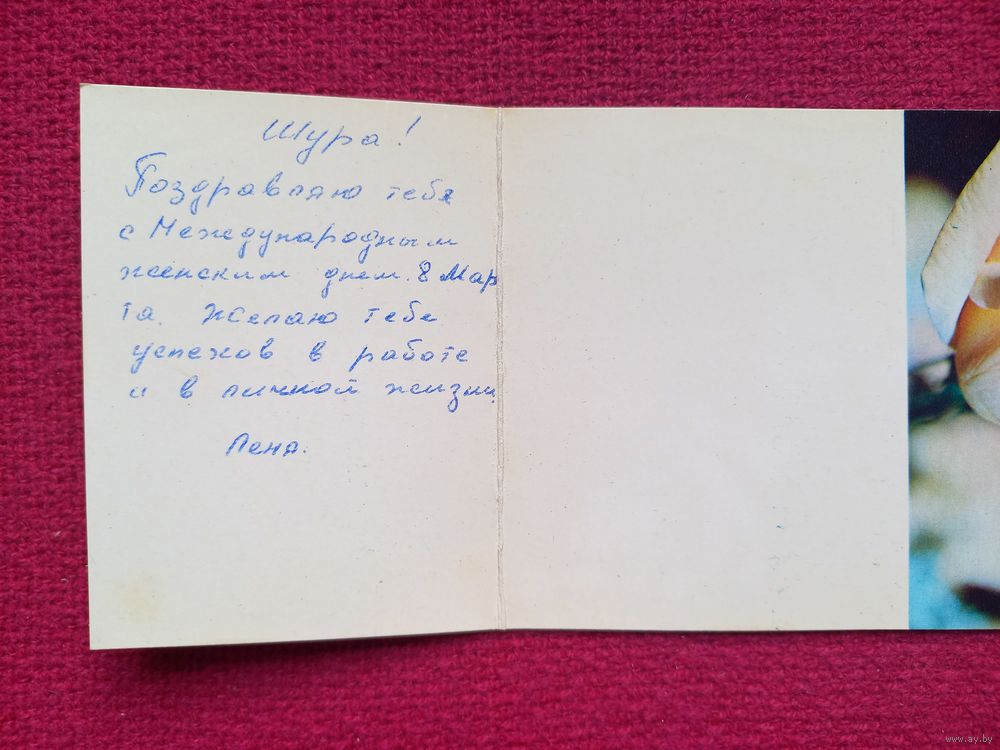 Шура!
Поздравляю тебя
с Международным
женским днем 8 Мар
та. Желаю тебе
успехов в работе
и в личной жизни.
Леня.
www.ay.by